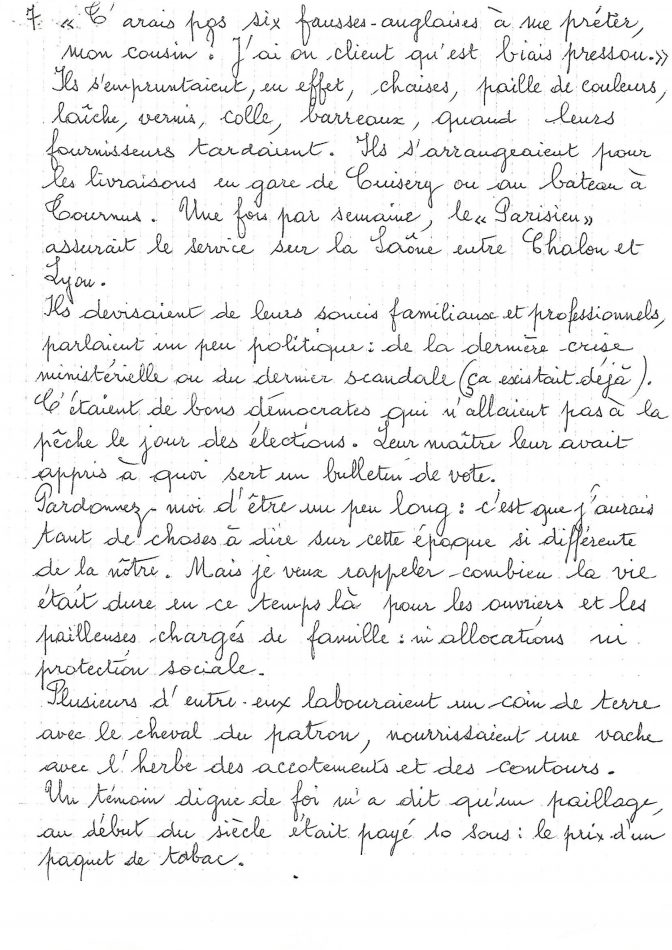 7. « T'arais pas six fausses-anglaises à me prêter,
mon cousin ? J'ai on client qu'est biais pressou. »
Ils s'empruntaient, en effet, chaises, paille de couleurs,
laîche, vernis, colle, barreaux, quand leurs
fournisseurs tardaient. Ils s'arrangeaient pour
les livraisons en gare de Cuisery ou au bateau à
Tournus. Une fois par semaine, le « Parisien »
assurait le service sur la Saône entre Chalon et
Lyon.
Ils devisaient de leurs soucis familiaux et professionnels,
parlaient un peu politique : de la dernière crise
ministérielle ou du dernier scandale (ça existait déjà).
C'étaient de bons démocrates qui n'allaient pas à la
pêche le jour des élections. Leur maître leur avait
appris à quoi sert un bulletin de vote.
Pardonnez-moi d'être un peu long : c'est que j'aurais
tant de choses à dire sur cette époque si différente
de la nôtre. Mais je veux rappeler combien la vie
était dure en ce temps là pour les ouvriers et les
pailleuses chargés de famille : ni allocations ni
protection sociale.
Plusieurs d'entre-eux labouraient un coin de terre
avec le cheval du patron, nourrissaient une vache
avec l'herbe des accotements et des contours.
Un témoin digne de foi m'a dit qu'un paillage,
au début du siècle était payé 10 sous : le prix d'un
paquet de tabac.